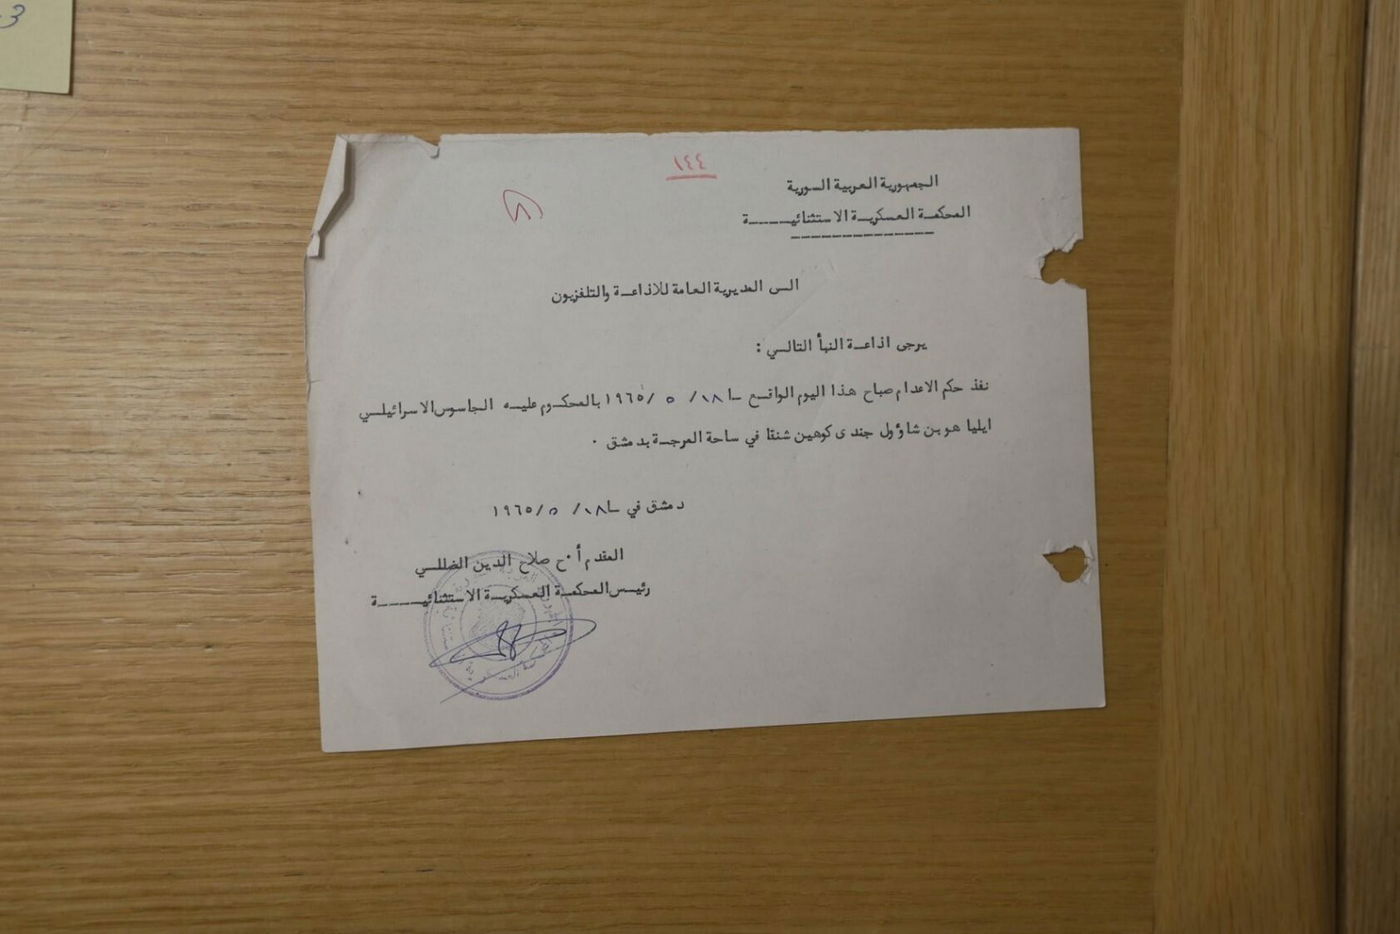 3
١٤٤
الجمهورية العربية السورية
المحكمة العسكرية الاستثنائيــــة
الى المديرية العامة للاذاعة والتلفزيون
يرجى اذاعة النبأ التالي :
نفذ حكم الاعدام صباح هذا اليوم الواقع ١٨/ ٥ /١٩٦٥ بالمحكوم عليه الجاسوس الاسرائيلي
ايليا هو بن شاؤول جندى كوهين شنقا في ساحة المرجة بدمشق ٠
دمشق في ١٨/ ٥ /١٩٦٥
المقدم أ٠ح صلاح الدين الضللي
رئيس المحكمة العسكرية الاستثنائيــــة